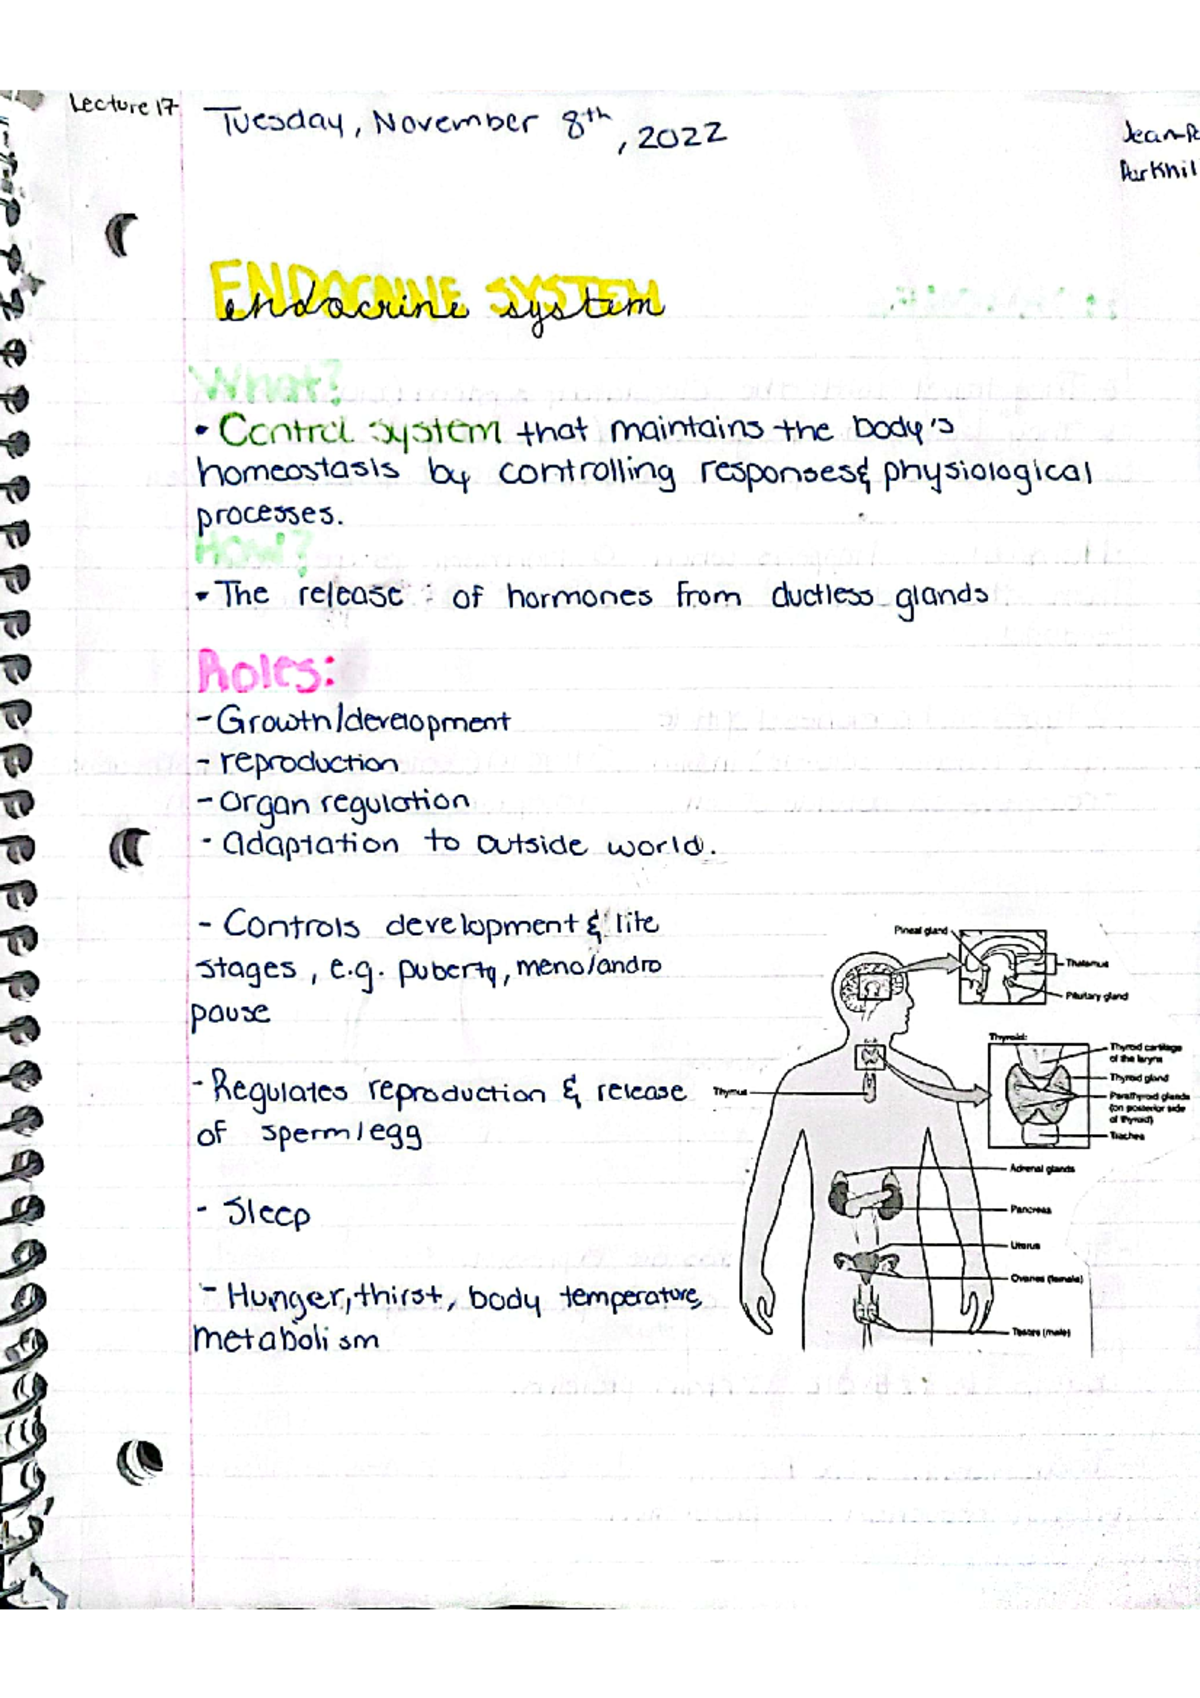 Lecture 17
Tuesday, November 8th, 2022
ENDOCRINE SYSTEM
endocrine system
What?
• Control system that maintains the body's
homeostasis by controlling responses & physiological
processes.
How?
• The release of hormones from ductless glands
Roles:
- Growth/development
- reproduction
- organ regulation
- adaptation to outside world.
- Controls development & life
stages, e.g. puberty, meno/andro
pause
- Regulates reproduction & release
of sperm/egg
- Sleep
- Hunger, thirst, body temperature,
metabolism
Pineal gland
Thalamus
Pituitary gland
Thyroid:
Thyroid cartilage
of the larynx
Thyroid gland
Parathyroid glands
(on posterior side
of thyroid)
Trachea
Thymus
Adrenal glands
Pancreas
Uterus
Ovaries (female)
Testes (male)